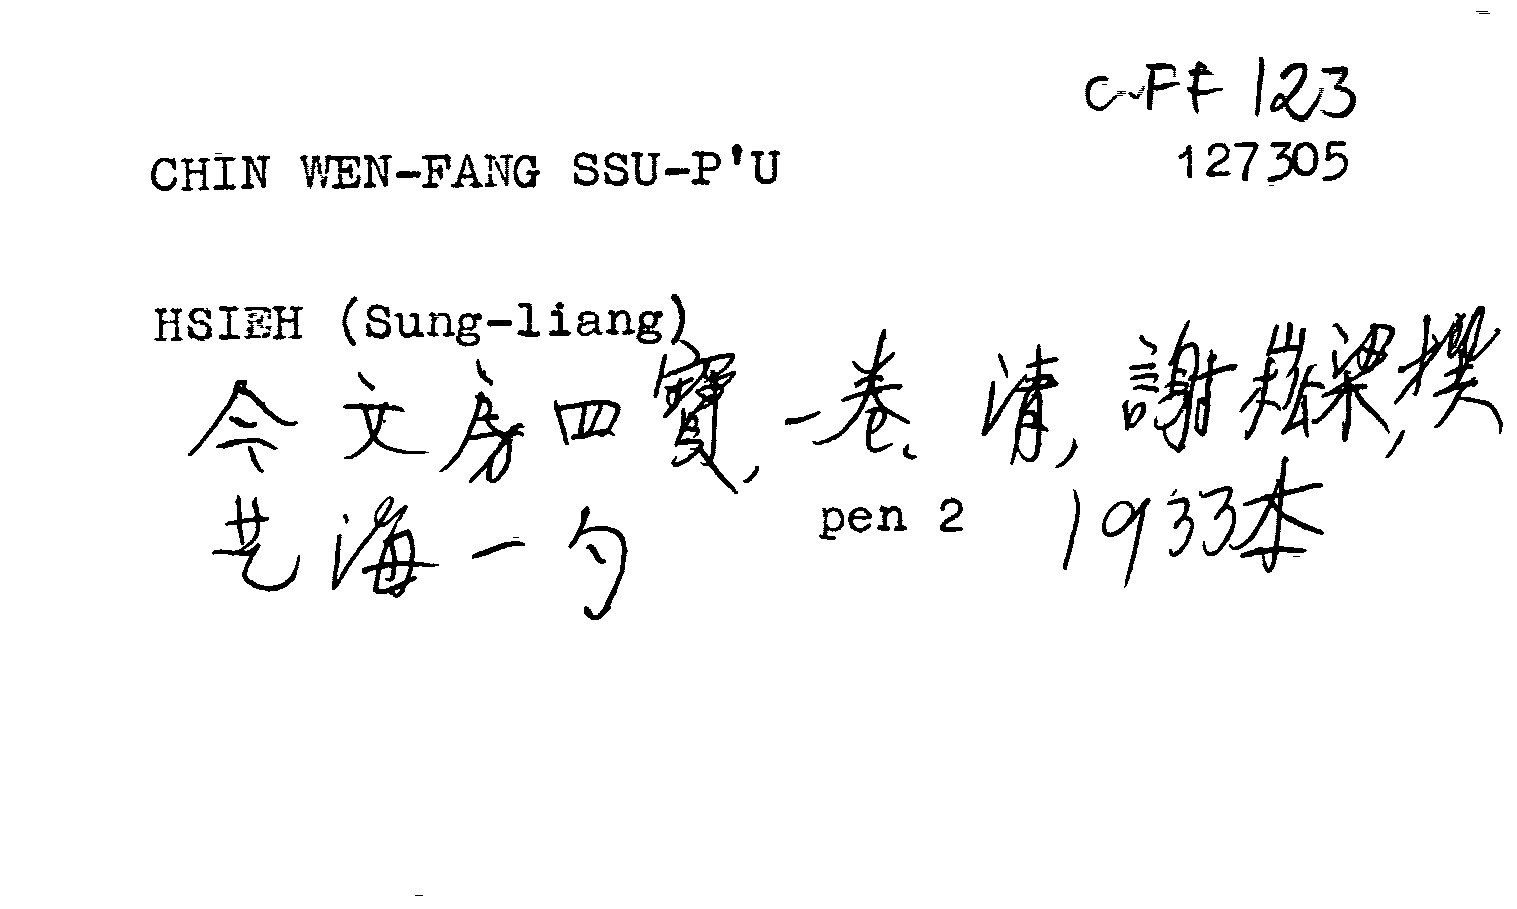 C-FF 123
CHIN WEN-FANG SSU-P'U
127305
HSIEH (Sung-liang)
今文房四寶, 一卷. 清, 謝崧梁, 撰
芸海一勺 pen 2 1933本